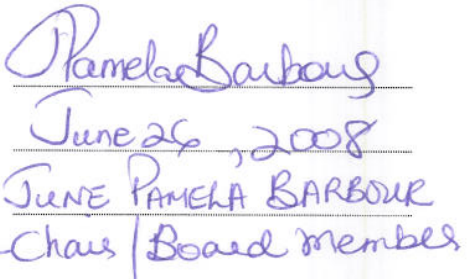 JPamela Barbour
June 26, 2008
JUNE PAMELA BARBOUR
Chair / Board Member